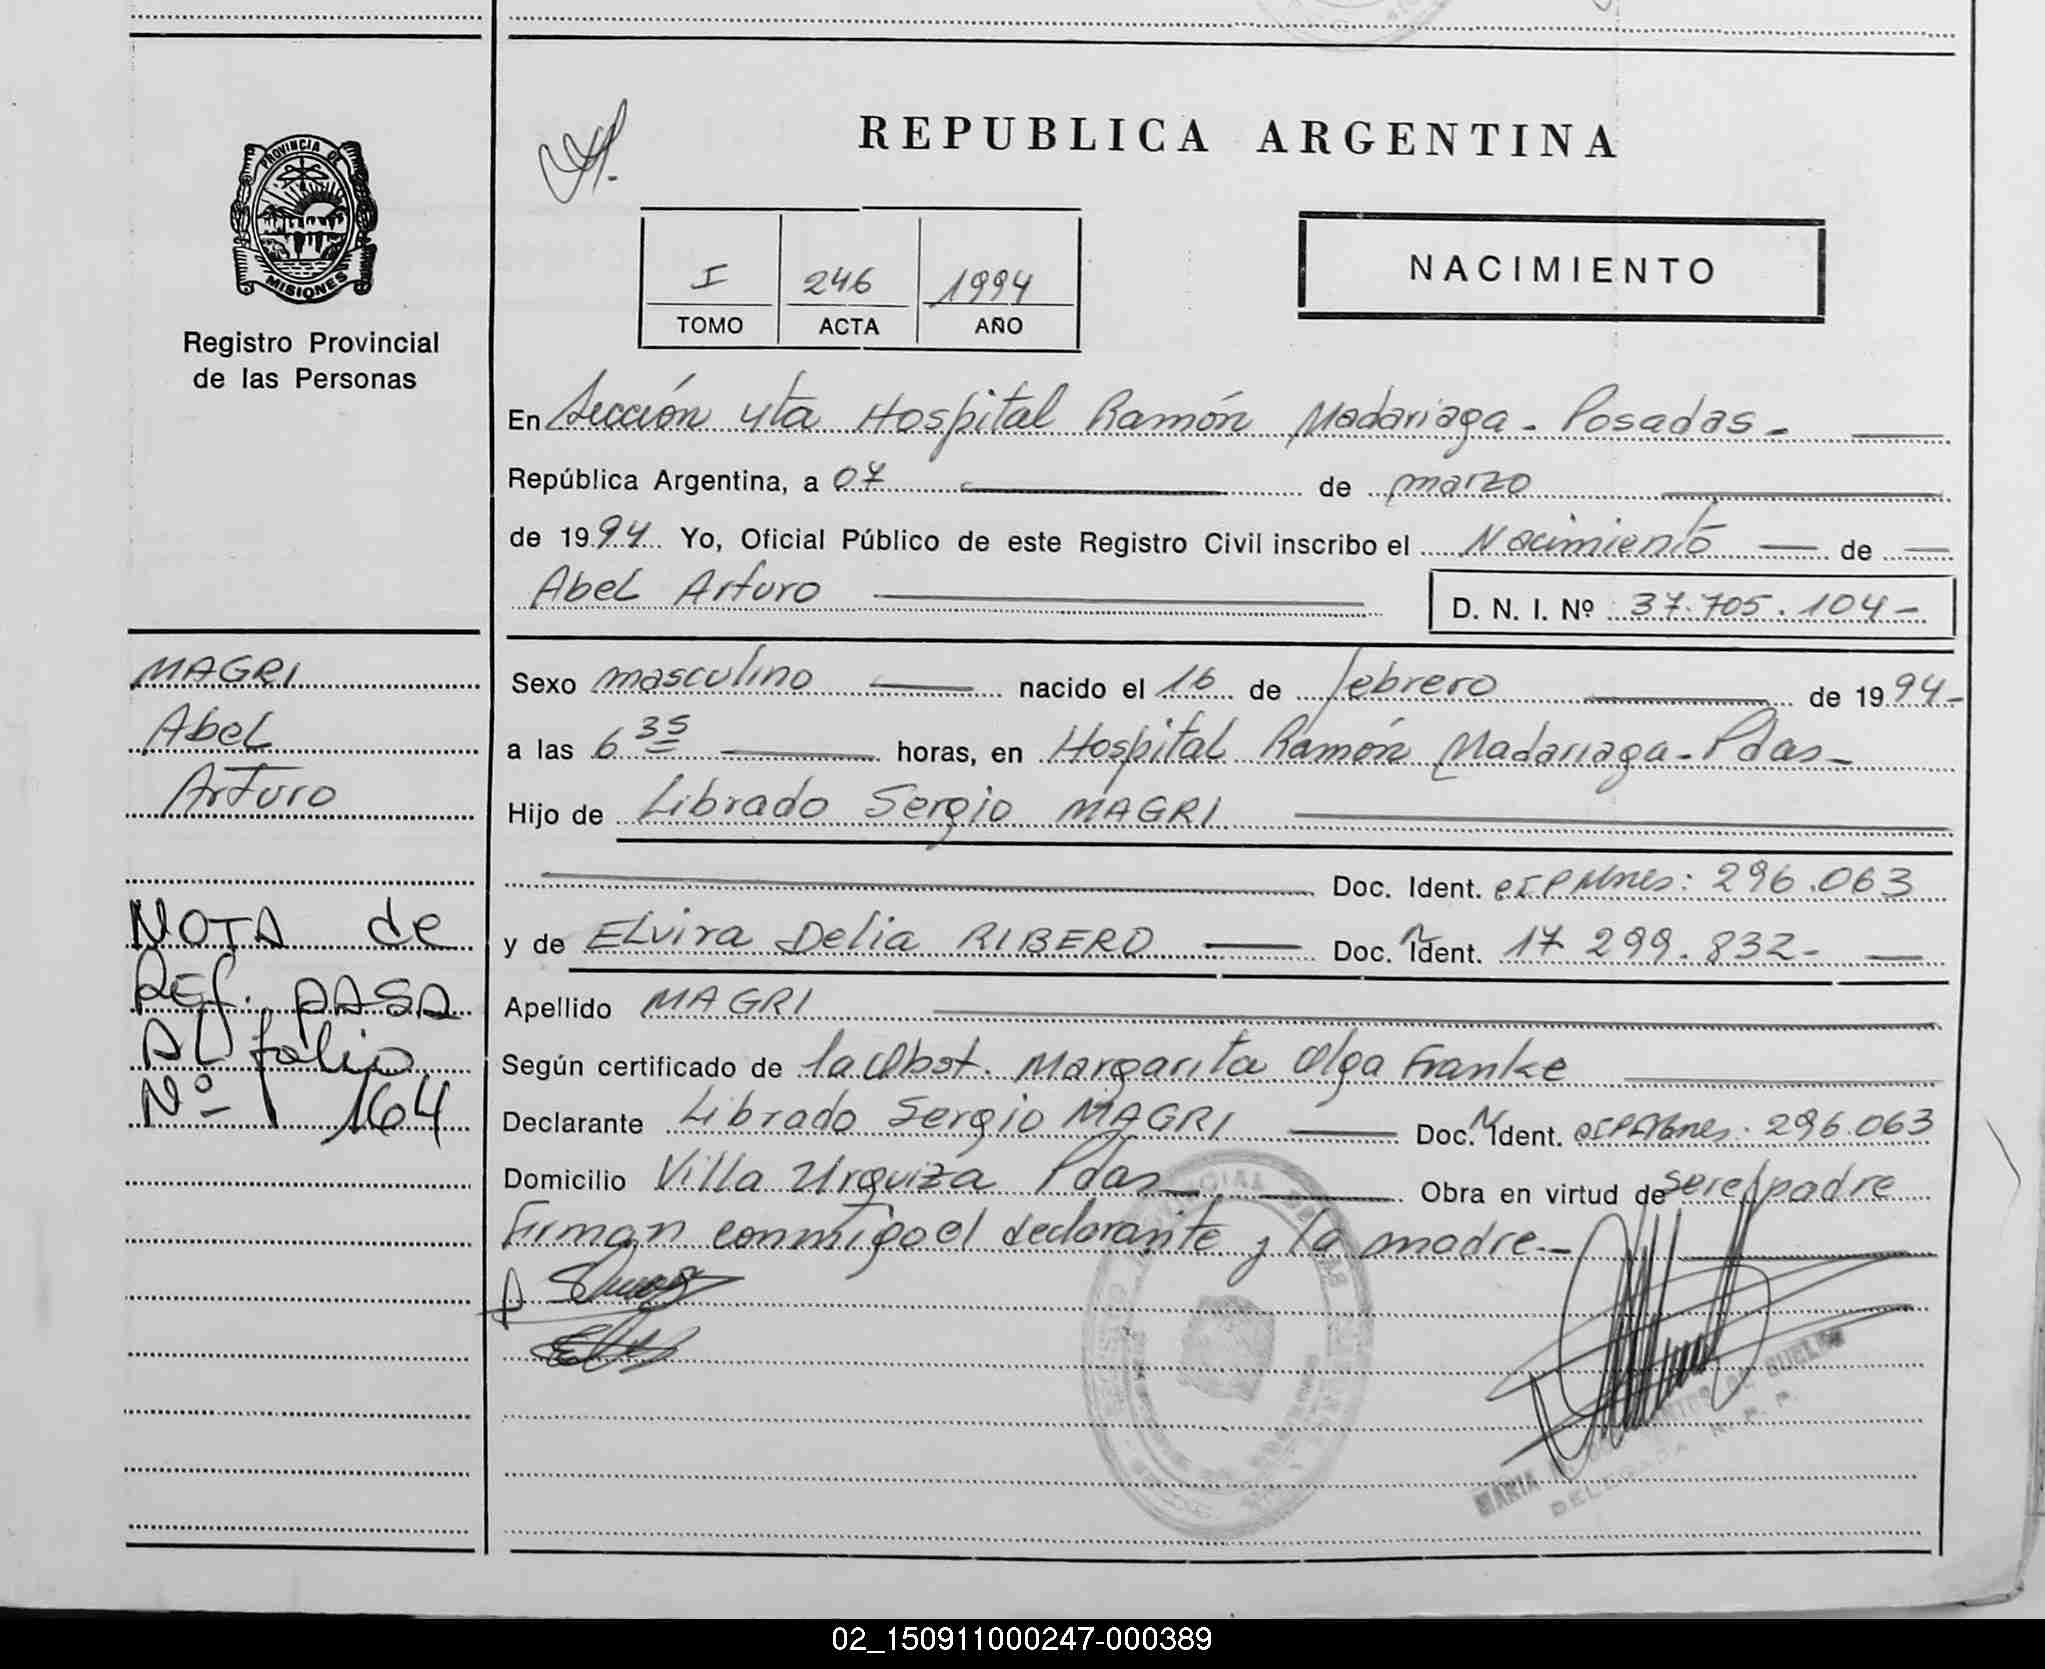 REPUBLICA ARGENTINA
PROVINCIA DE
MISIONES
Registro Provincial
de las Personas
I 246 1994
TOMO ACTA AÑO
NACIMIENTO
En Sección 4ta Hospital Ramón Madariaga - Posadas -
República Argentina, a 07 de marzo
de 1994 Yo, Oficial Público de este Registro Civil inscribo el Nacimiento de
Abel Arturo D. N. I. Nº 37.705.104-
MAGRI
Abel
Arturo
NOTA de
REf. PASA
AL folio
Nº 164
Sexo masculino nacido el 16 de febrero de 1994-
a las 6 35 horas, en Hospital Ramón Madariaga - Pdas -
Hijo de Librado Sergio MAGRI
Doc. Ident. 296.063
y de ELvira Delia RIBERO Doc. Ident. 17 299.832-
Apellido MAGRI
Según certificado de la Obst. Margarita Olga Franke
Declarante Librado Sergio MAGRI Doc. Ident. 296.063
Domicilio Villa Urquiza Pdas Obra en virtud de ser el padre
Firman conmigo el declarante y la madre.-
MARIA
DELEGADA R. P. P.
02_150911000247-000389